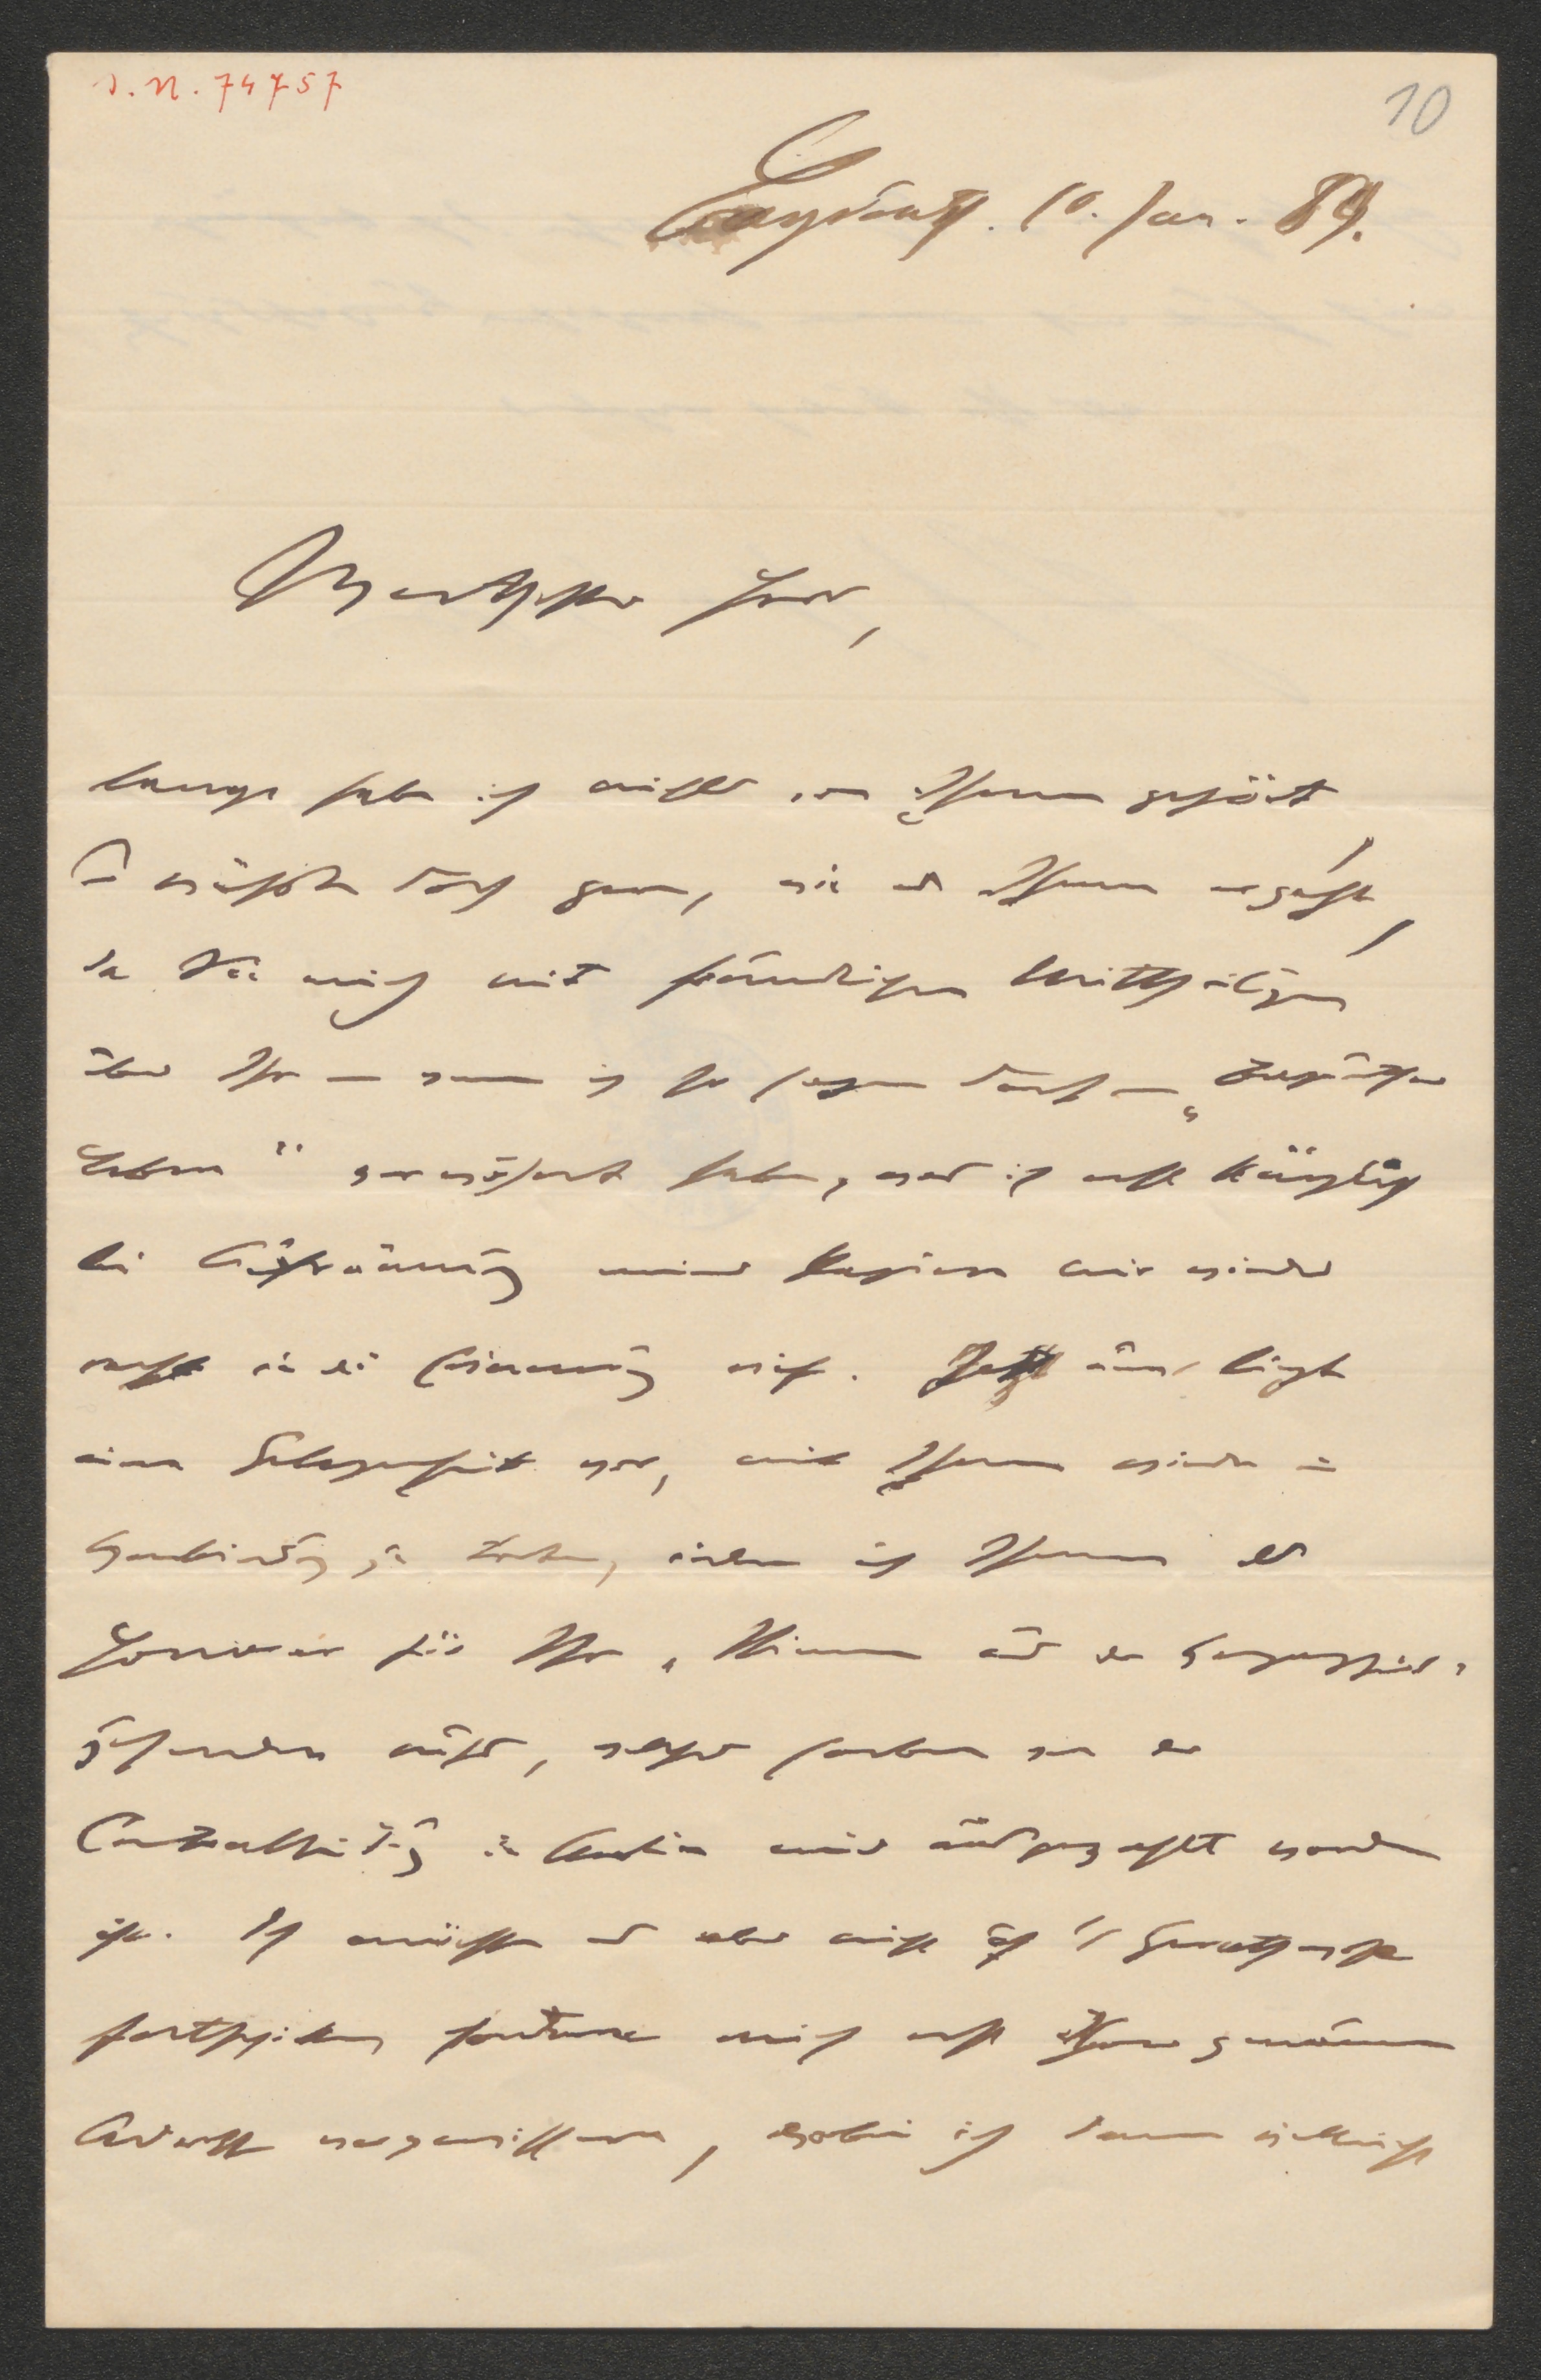 J. N. 74757
10
Bayreuth. 10. Jan. 89.
Werthester Herr,
lange habe ich nichts von Ihnen gehört
u wüßte doch gern, wie es Ihnen ergeht,
da Sie mich mit freundlichen Mittheilungen
über Ihr — wenn ich so sagen darf —
Leben" verwöhnt haben, was ich erst kürzlich
bei Aufräumung meiner Papiere mir wieder
recht in die Erinnerung rief. Jetzt nun liegt
eine Gelegenheit vor, mit Ihnen wieder in
Verbindung zu treten, indem ich Ihnen das
Honorar für Ihre „Stimmen aus der Vergangenheit"
zusenden muß, welches soeben von der
Centralleitung in Berlin mir ausgezahlt worden
ist. Ich möchte es aber nicht auf's Gerathewohl
fortschicken, sondern mich erst Ihrer genauen
Adresse vergewissern, wobei ich dann vielleicht